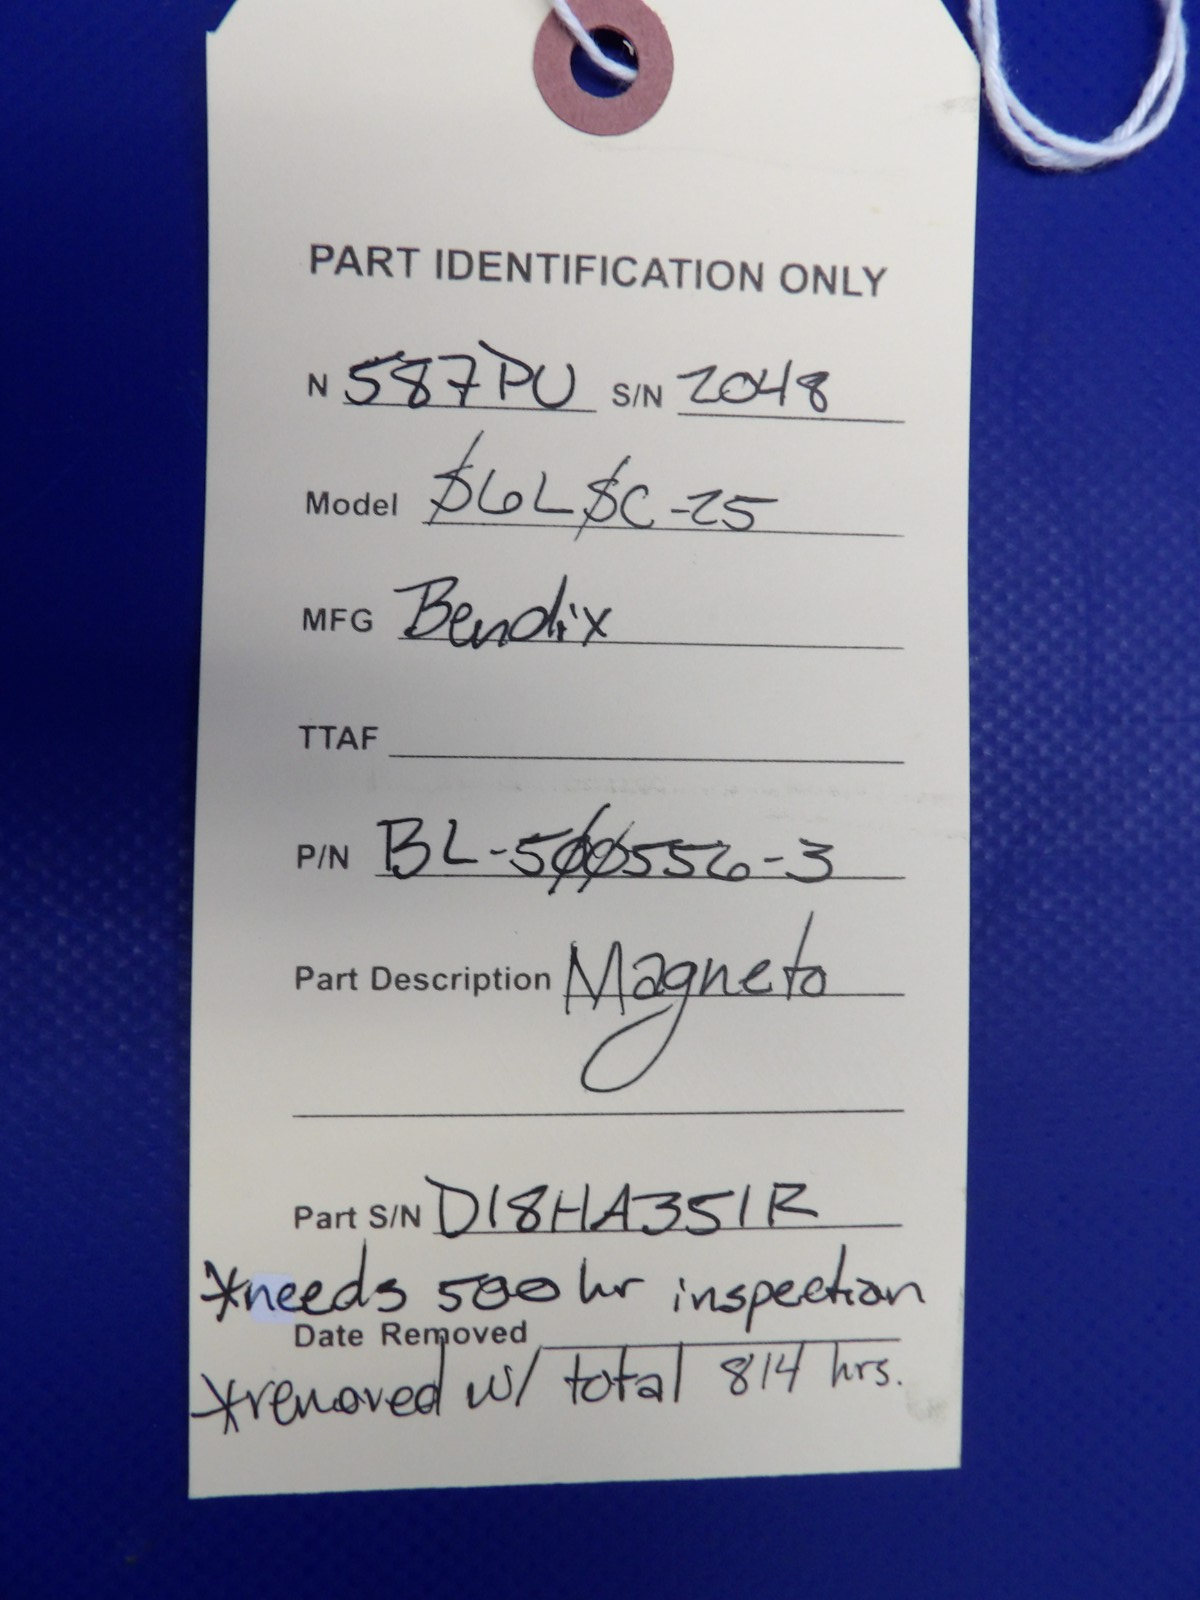 PART IDENTIFICATION ONLY
N 587PU S/N 2048
Model S6LSC-25
MFG Bendix
TTAF
P/N BL-500556-3
Part Description Magneto
Part S/N D18HA351R
*needs 500 hr inspection
Date Removed
*removed w/ total 814 hrs.